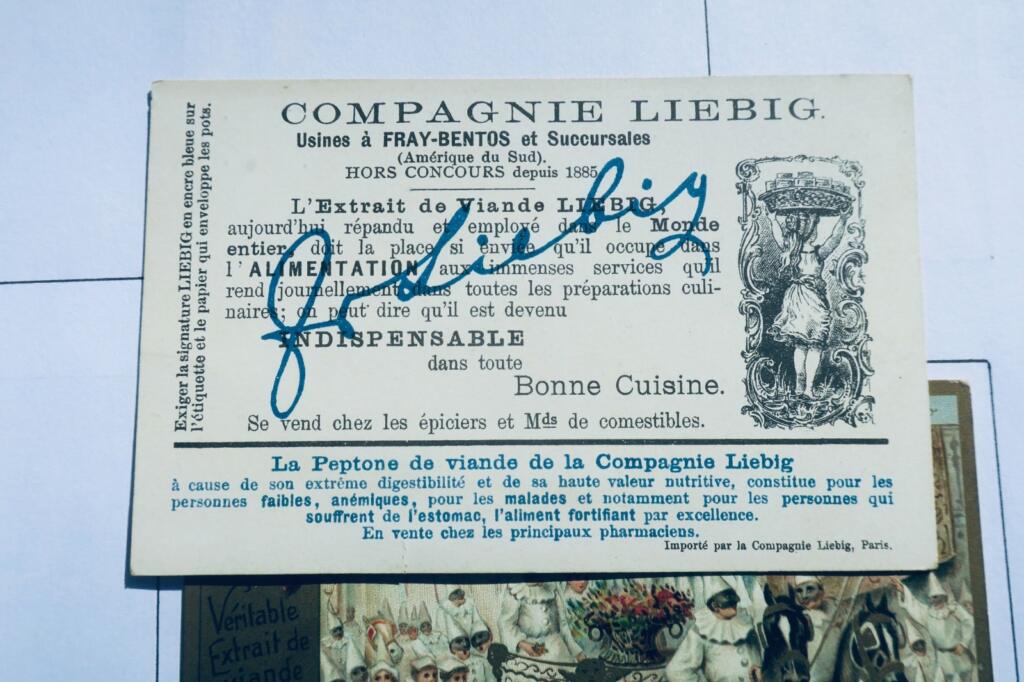 COMPAGNIE LIEBIG.
Usines à FRAY-BENTOS et Succursales
(Amérique du Sud).
HORS CONCOURS depuis 1885
L'Extrait de Viande LIEBIG,
aujourd'hui répandu et employé dans le Monde
entier, doit la place si enviée qu'il occupe dans
l'ALIMENTATION aux immenses services qu'il
rend journellement dans toutes les préparations culi-
naires; on peut dire qu'il est devenu
INDISPENSABLE
dans toute
Bonne Cuisine.
Se vend chez les épiciers et Mds de comestibles.
Exiger la signature LIEBIG en encre bleue sur
l'étiquette et le papier qui enveloppe les pots.
La Peptone de viande de la Compagnie Liebig
à cause de son extrême digestibilité et de sa haute valeur nutritive, constitue pour les
personnes faibles, anémiques, pour les malades et notamment pour les personnes qui
souffrent de l'estomac, l'aliment fortifiant par excellence.
En vente chez les principaux pharmaciens.
Importé par la Compagnie Liebig, Paris.
Véritable
Extrait de
Viande